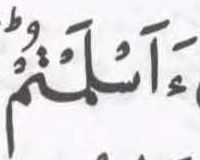 ءَاَسْلَمْتُمْ